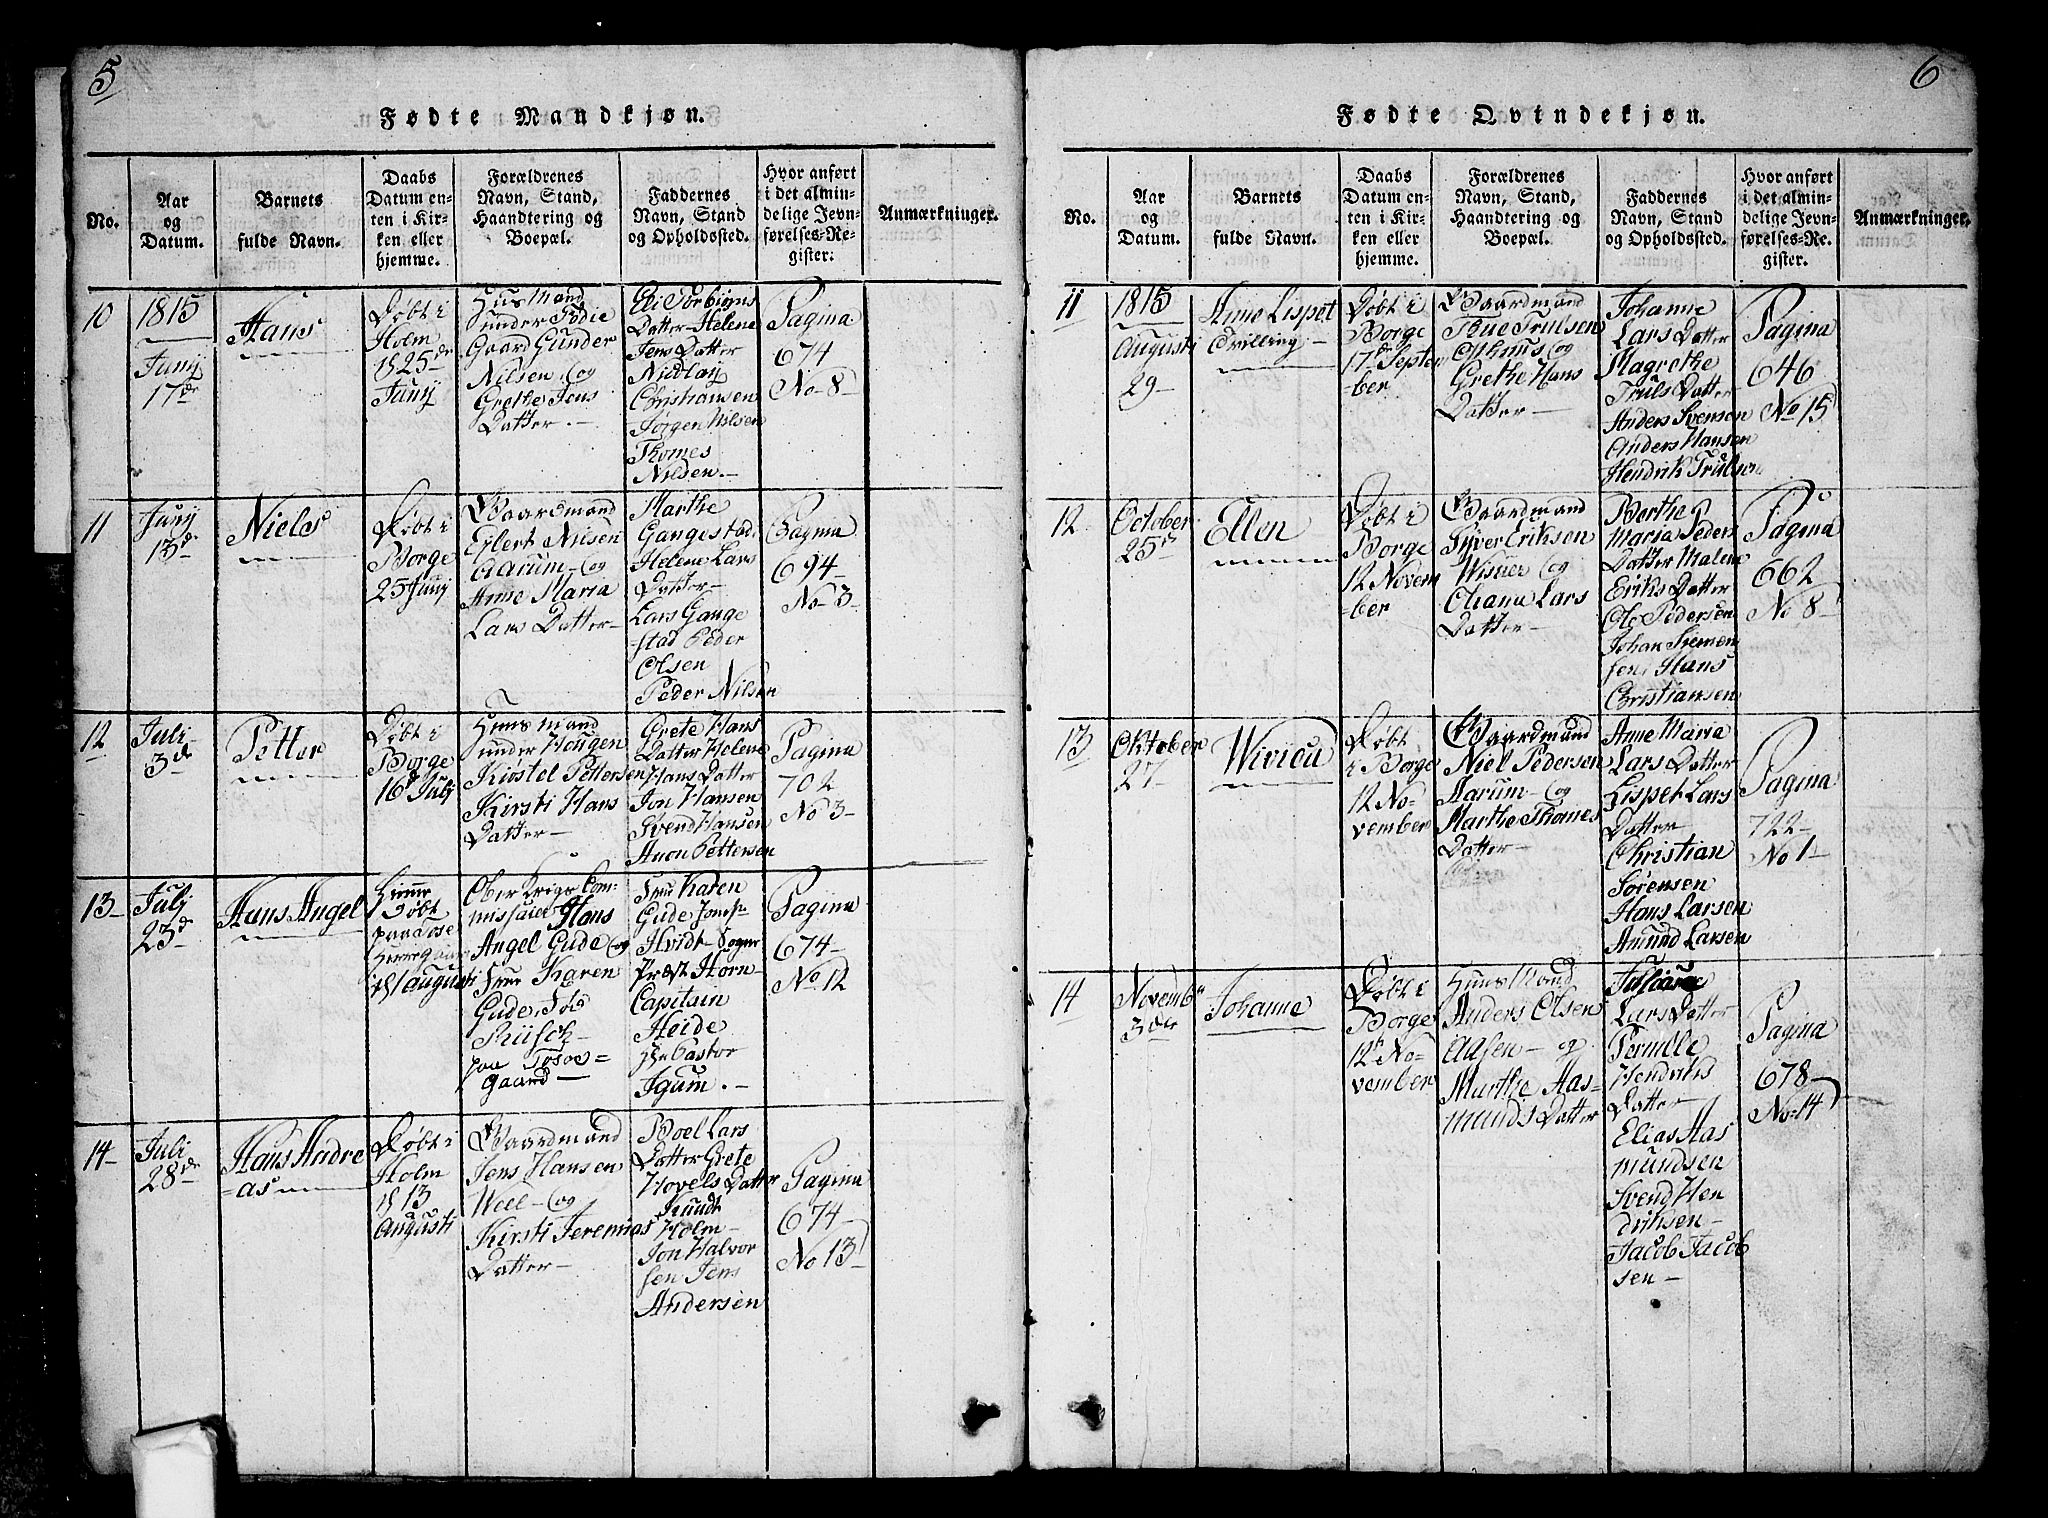 5
Fødte Mandkjøn.
No.
Aar
og
Datum.
Barnets
fulde Navn.
Daabs
Datum en-
ten i Kir-
ken eller
hjemme.
Forældrenes
Navn, Stand,
Haandtering og
Boepæl.
Faddernes
Navn, Stand
og Opholdssted.
Hvor anført
i det almin-
delige Jevn-
førelses-Re-
gister.
Anmærkninger.
10
1815
Junij
17de
Hans
Døbt i
Holm
25de
Junij
Huus Mand
under
Gaard Gunder
Nilsen og
Grethe Jens
Datter.
Datter Helene
Jens Datter
Nicolay
Christiansen
Jørgen Nilsen
Thomes
Nilsen
Pagina
674
No 8
11
Junij
13de
Niels
Døbt i
Borge
25 Junij
Gaardmand
Eylert Nilsen
Aarum og
Anne Maria
Lars Datter
Marthe
Gangestad
Helene Lars
Datter
Lars Gange
stad Peder
Olsen
Peder Nilsen
Pagina
694
No 3
12
Juli
3de
Petter
Døbt i
Borge
16d Julj
Huus Mand
under Hougen
Kiøstel Pettersen
Kirsti Hans
Datter
Grete Hans
Datter Helene
Hans Datter
Jon Hansen
Svend Hansen
Pettersen
Pagina
702
No 3
13
Julj
23de
Hans Angel
Hiemme
Døbt
paa
Augusti
Ober Krigs Com-
missair Hans
Angel Gude og
Frue Karen
Gude, Fød
paa
gaard
Frue Karen
Gude
Hvidt Sogne
Præst Horn
Capitain
Heide
Pastor
Pagina
674
No. 12
14
Juli
28de
Hans Andre
=as
Døbt i
Holm
13
Augusti
Gaardmand
Jens Hansen
Weel og
Kirsti Jeremias
Datter
Boel Lars
Datter Grete
Hovels Datter
Knudt
Holm
Jon Halvor
sen Jens
Andersen
Pagina
674
No 13
6
Fødte Qvindekjøn.
No.
Aar
og
Datum.
Barnets
fulde Navn.
Daabs
Datum en-
ten i Kir-
ken eller
hjemme.
Forældrenes
Navn, Stand,
Haandtering og
Boepæl.
Faddernes
Navn, Stand
og Opholdssted.
Hvor anført
i det almin-
delige Jevn-
førelses-Re-
gister.
Anmærkninger.
11
1815
Augusti
29
Anne Lispet
Tvilling
Døbt i
Borge
17de Septem
=ber
Gaardmand
Thue Trulsen
og
Grethe Hans
Datter
Johanne
Lars Datter
Magrethe
Truls Datter
Anders Svensen
Anders Hansen
Hendrik Trulsen
Pagina
646
No 15
12
October
25de
Ellen
Døbt i
Borge
12 Novem
ber
Gaardmand
Syver Eriksen
og
Oliana Lars
Datter
Berthe
Maria Peders
Datter Malene
Eriks Datter
Ole Pedersen
Johan Siemen
sen, Hans
Christiansen
Pagina
662
No 8
13
Oktober
27
Wivica
Døbt
i Borge
12 No-
vember
Gaardmand
Niel Pedersen
Aarum og
Marthe Thomes
Datter
Anne Maria
Lars Datter
Lispet Lars
Datter
Christian
Sørensen
Hans Larsen
Amund Larsen
Pagina
722
No 1
14
Novembr
3die
Johanne
Døbt i
Borge
12te No-
vember
Huus Mand
Anders Olsen
Aasen og
Marthe Aas-
munds Datter
Lars Datter
Pernille
Hendriks
Datter
Elias Aas
mundsen
Svend Hen
driksen
Jacob Jacob
sen
Pagina
678
No 14